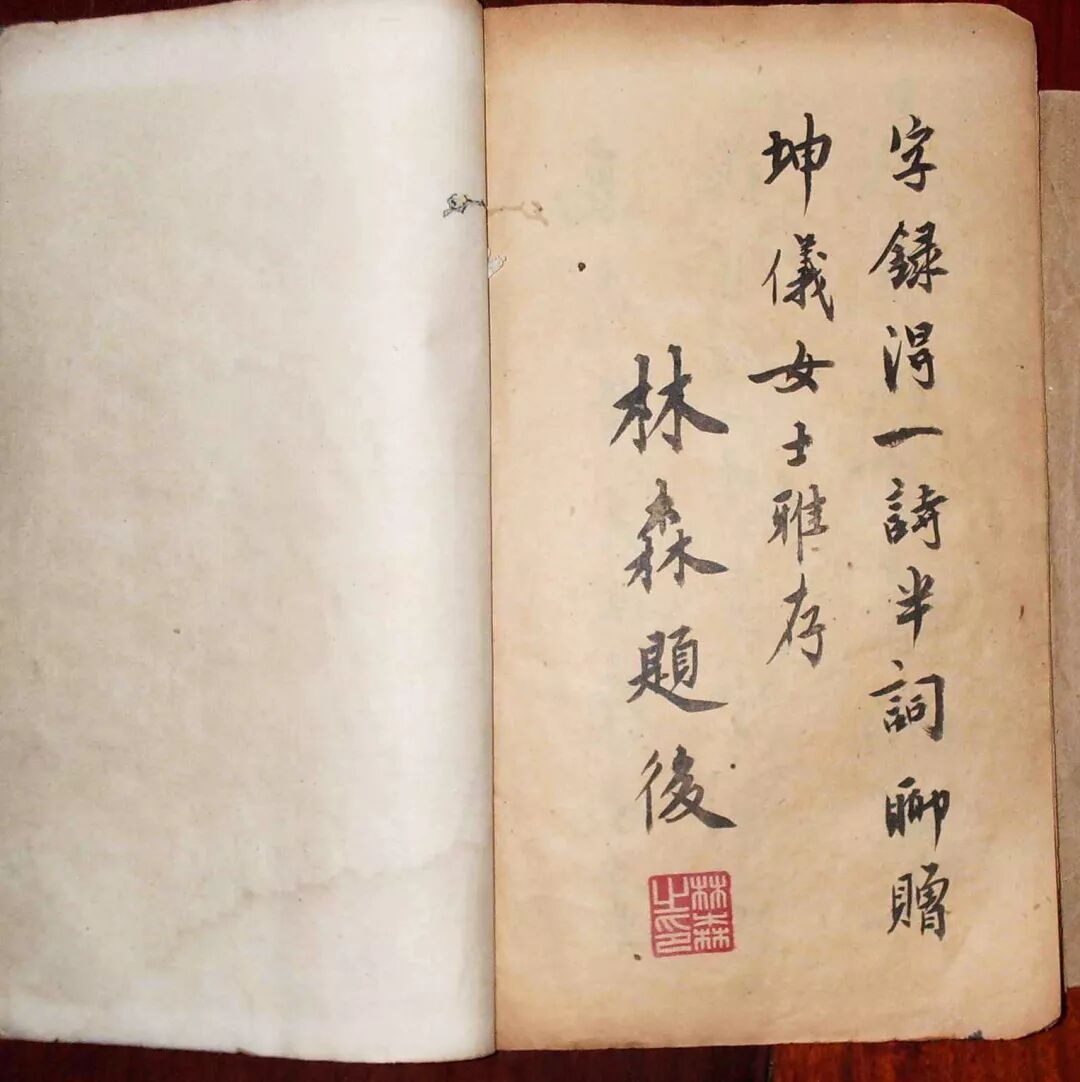 字錄得一詩半詞聊贈
坤儀女士雅存
林森題後
林森之印